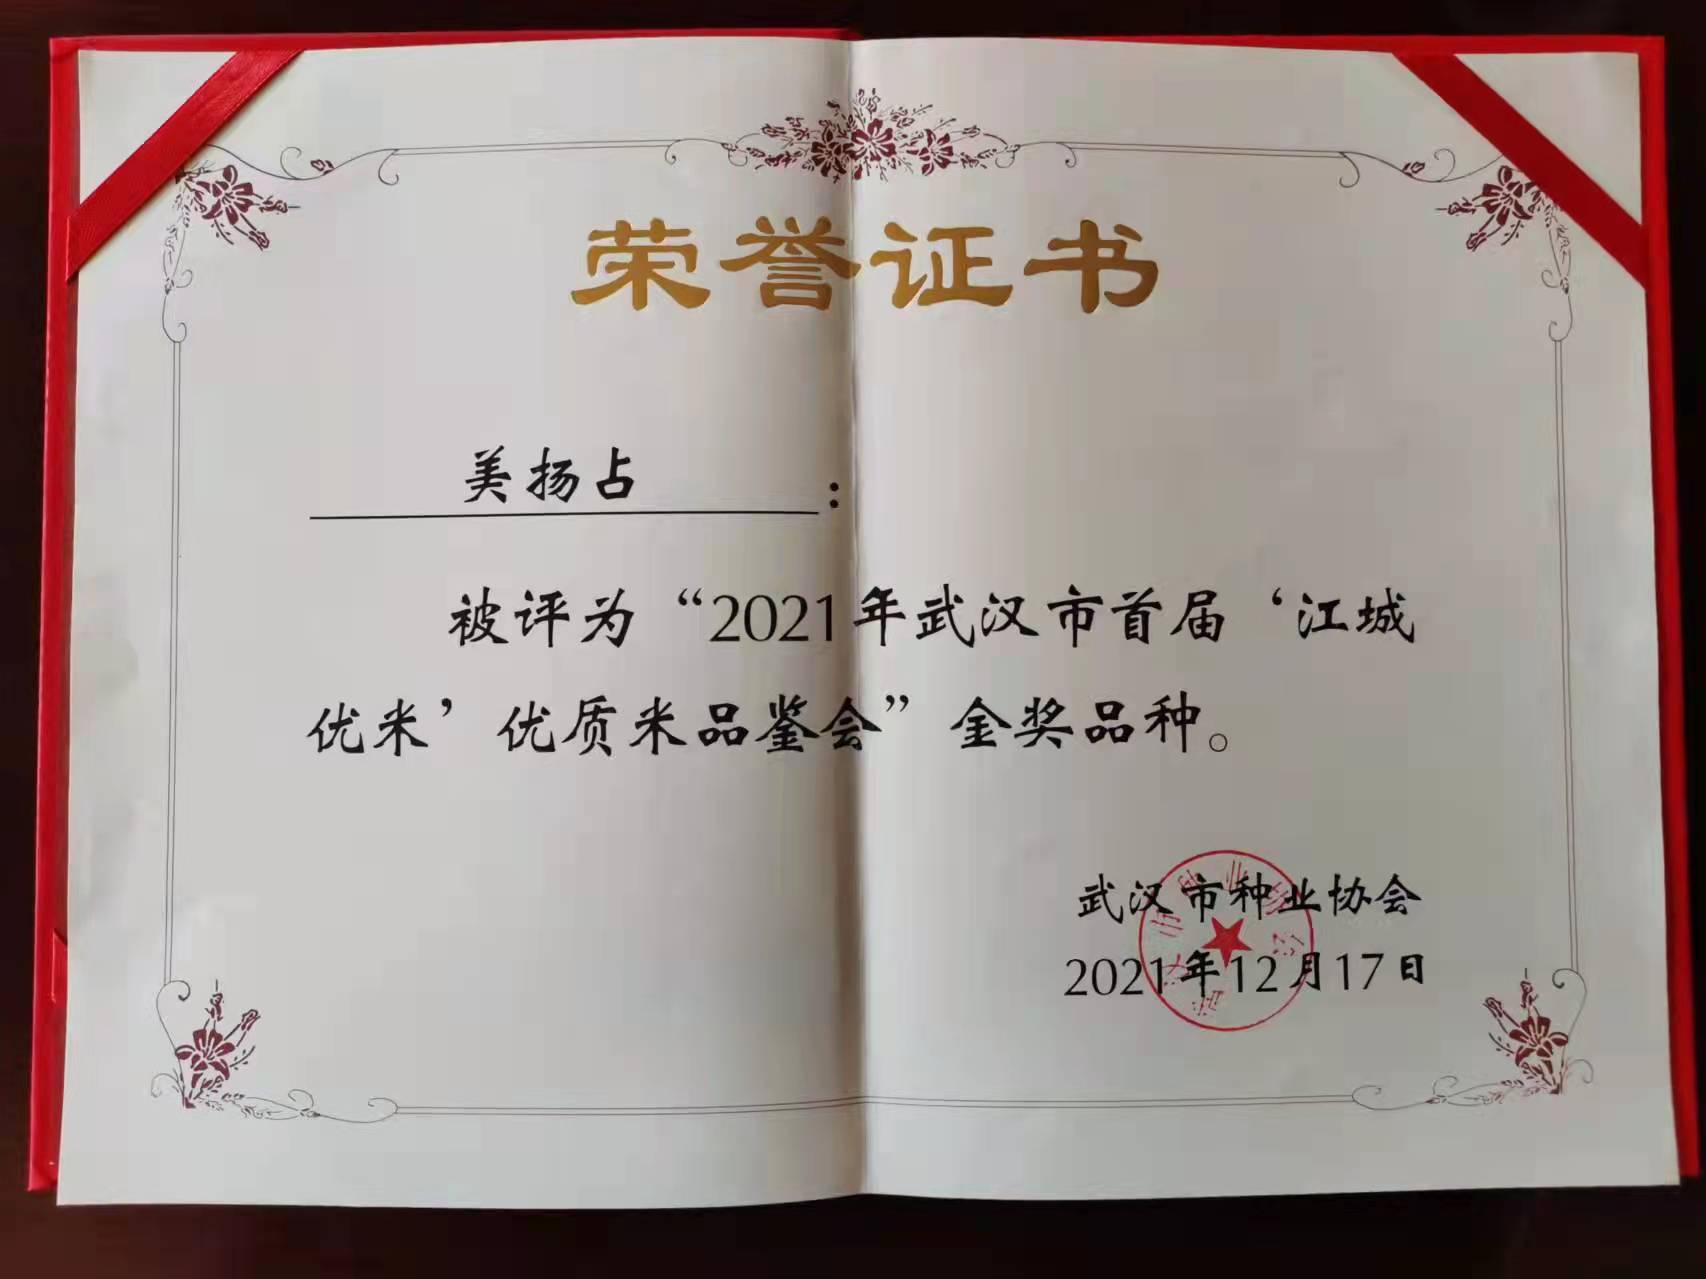 荣誉证书
美扬占：
被评为“2021年武汉市首届‘江城
优米’优质米品鉴会”金奖品种。
武汉市种业协会
2021年12月17日